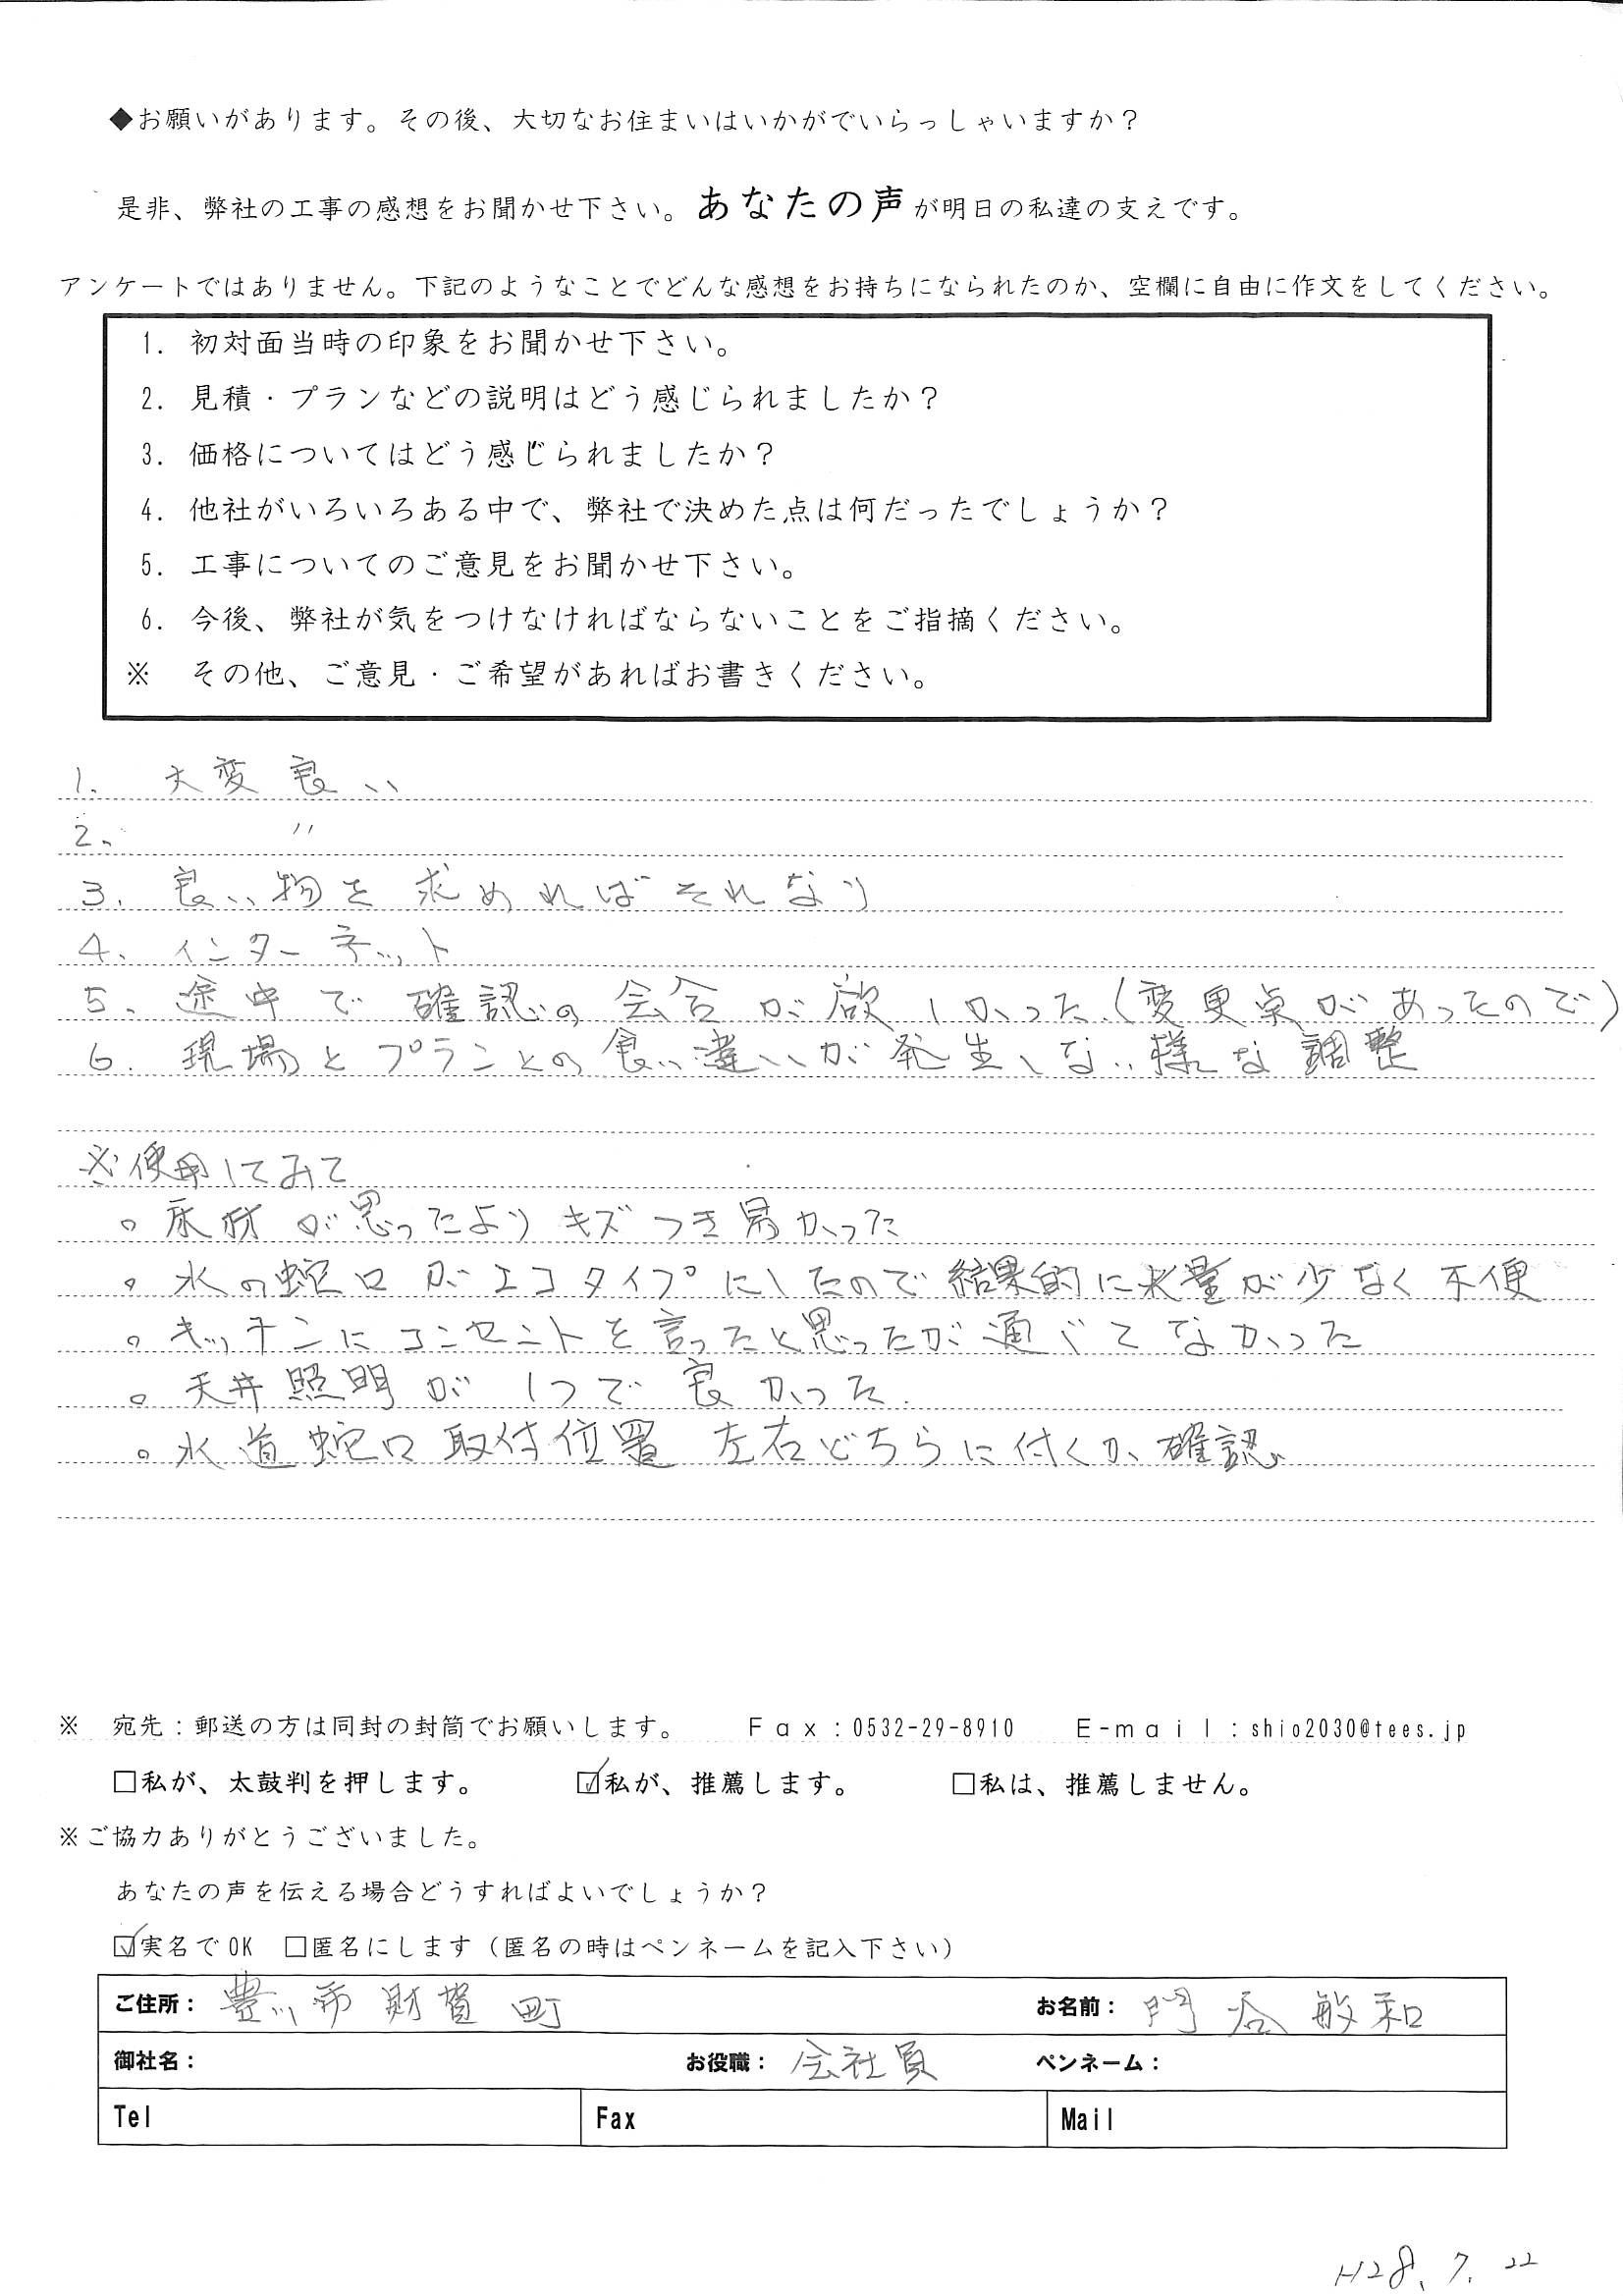 ◆お願いがあります。その後、大切なお住まいはいかがでいらっしゃいますか？
是非、弊社の工事の感想をお聞かせ下さい。あなたの声が明日の私達の支えです。
アンケートではありません。下記のようなことでどんな感想をお持ちになられたのか、空欄に自由に作文をしてください。
1. 初対面当時の印象をお聞かせ下さい。
2. 見積・プランなどの説明はどう感じられましたか？
3. 価格についてはどう感じられましたか？
4. 他社がいろいろある中で、弊社で決めた点は何だったでしょうか？
5. 工事についてのご意見をお聞かせ下さい。
6. 今後、弊社が気をつけなければならないことをご指摘ください。
※ その他、ご意見・ご希望があればお書きください。
1. 大変良い
2. 〃
3. 良い物を求めればそれなり
4. インターネット
5. 途中で確認の会合が欲しかった（変更点があったので）
6. 現場とプランとの食い違いが発生しない様な調整
※使用してみて
。床材が思ったよりキズつき易かった
。水の蛇口がエコタイプにしたので結果的に水量が少なく不便
。キッチンにコンセントを言ったと思ったが通じてなかった
。天井照明が1つで良かった.
。水道蛇口取付位置 左右どちらに付くか、確認
※ 宛先：郵送の方は同封の封筒でお願いします。 Fax：0532-29-8910 E-mail：shio2030@tees.jp
□私が、太鼓判を押します。 ☑私が、推薦します。 □私は、推薦しません。
※ご協力ありがとうございました。
あなたの声を伝える場合どうすればよいでしょうか？
☑実名でOK □匿名にします（匿名の時はペンネームを記入下さい）
ご住所： 豊川市財賀町 お名前： 門谷敏和
御社名： お役職： 会社員 ペンネーム：
Tel Fax Mail
H28.7.22